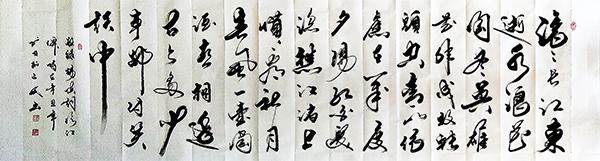 滚〻长江東
逝水浪花
淘尽英雄
是非成敗轉
頭空青山依
舊在几度
夕陽紅白髮
渔樵江渚上
慣看秋月
春風一壺濁
酒喜相逢
古今多少
事都付笑
談中
敬録楊慎詞临江